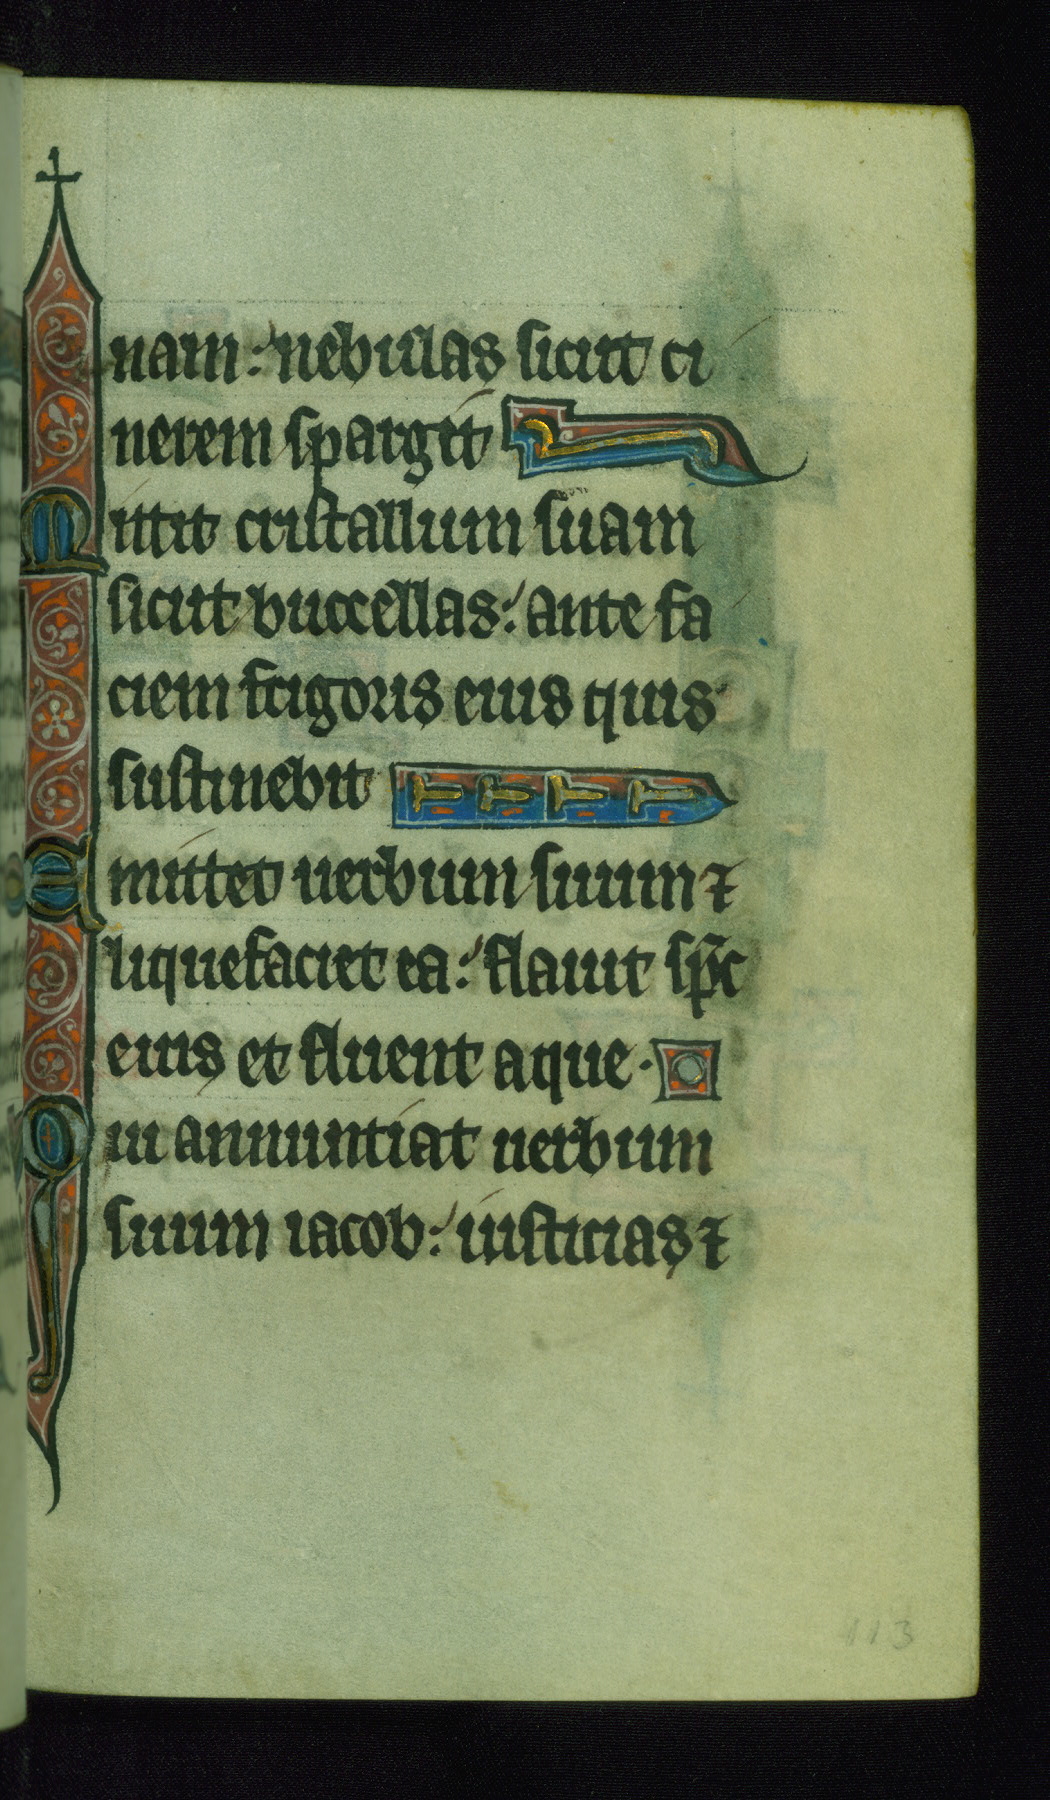 nam: nebulas sicut ci
nerem spargit
Mittit cristallum suam
sicut buccellas: ante fa
ciem frigoris eius quis
sustinebit
Emittet uerbum suum ⁊
liquefaciet ea: flauit sp̃c
eius et fluent aque·
Qui annuntiat uerbum
suum iacob: iusticias ⁊
113